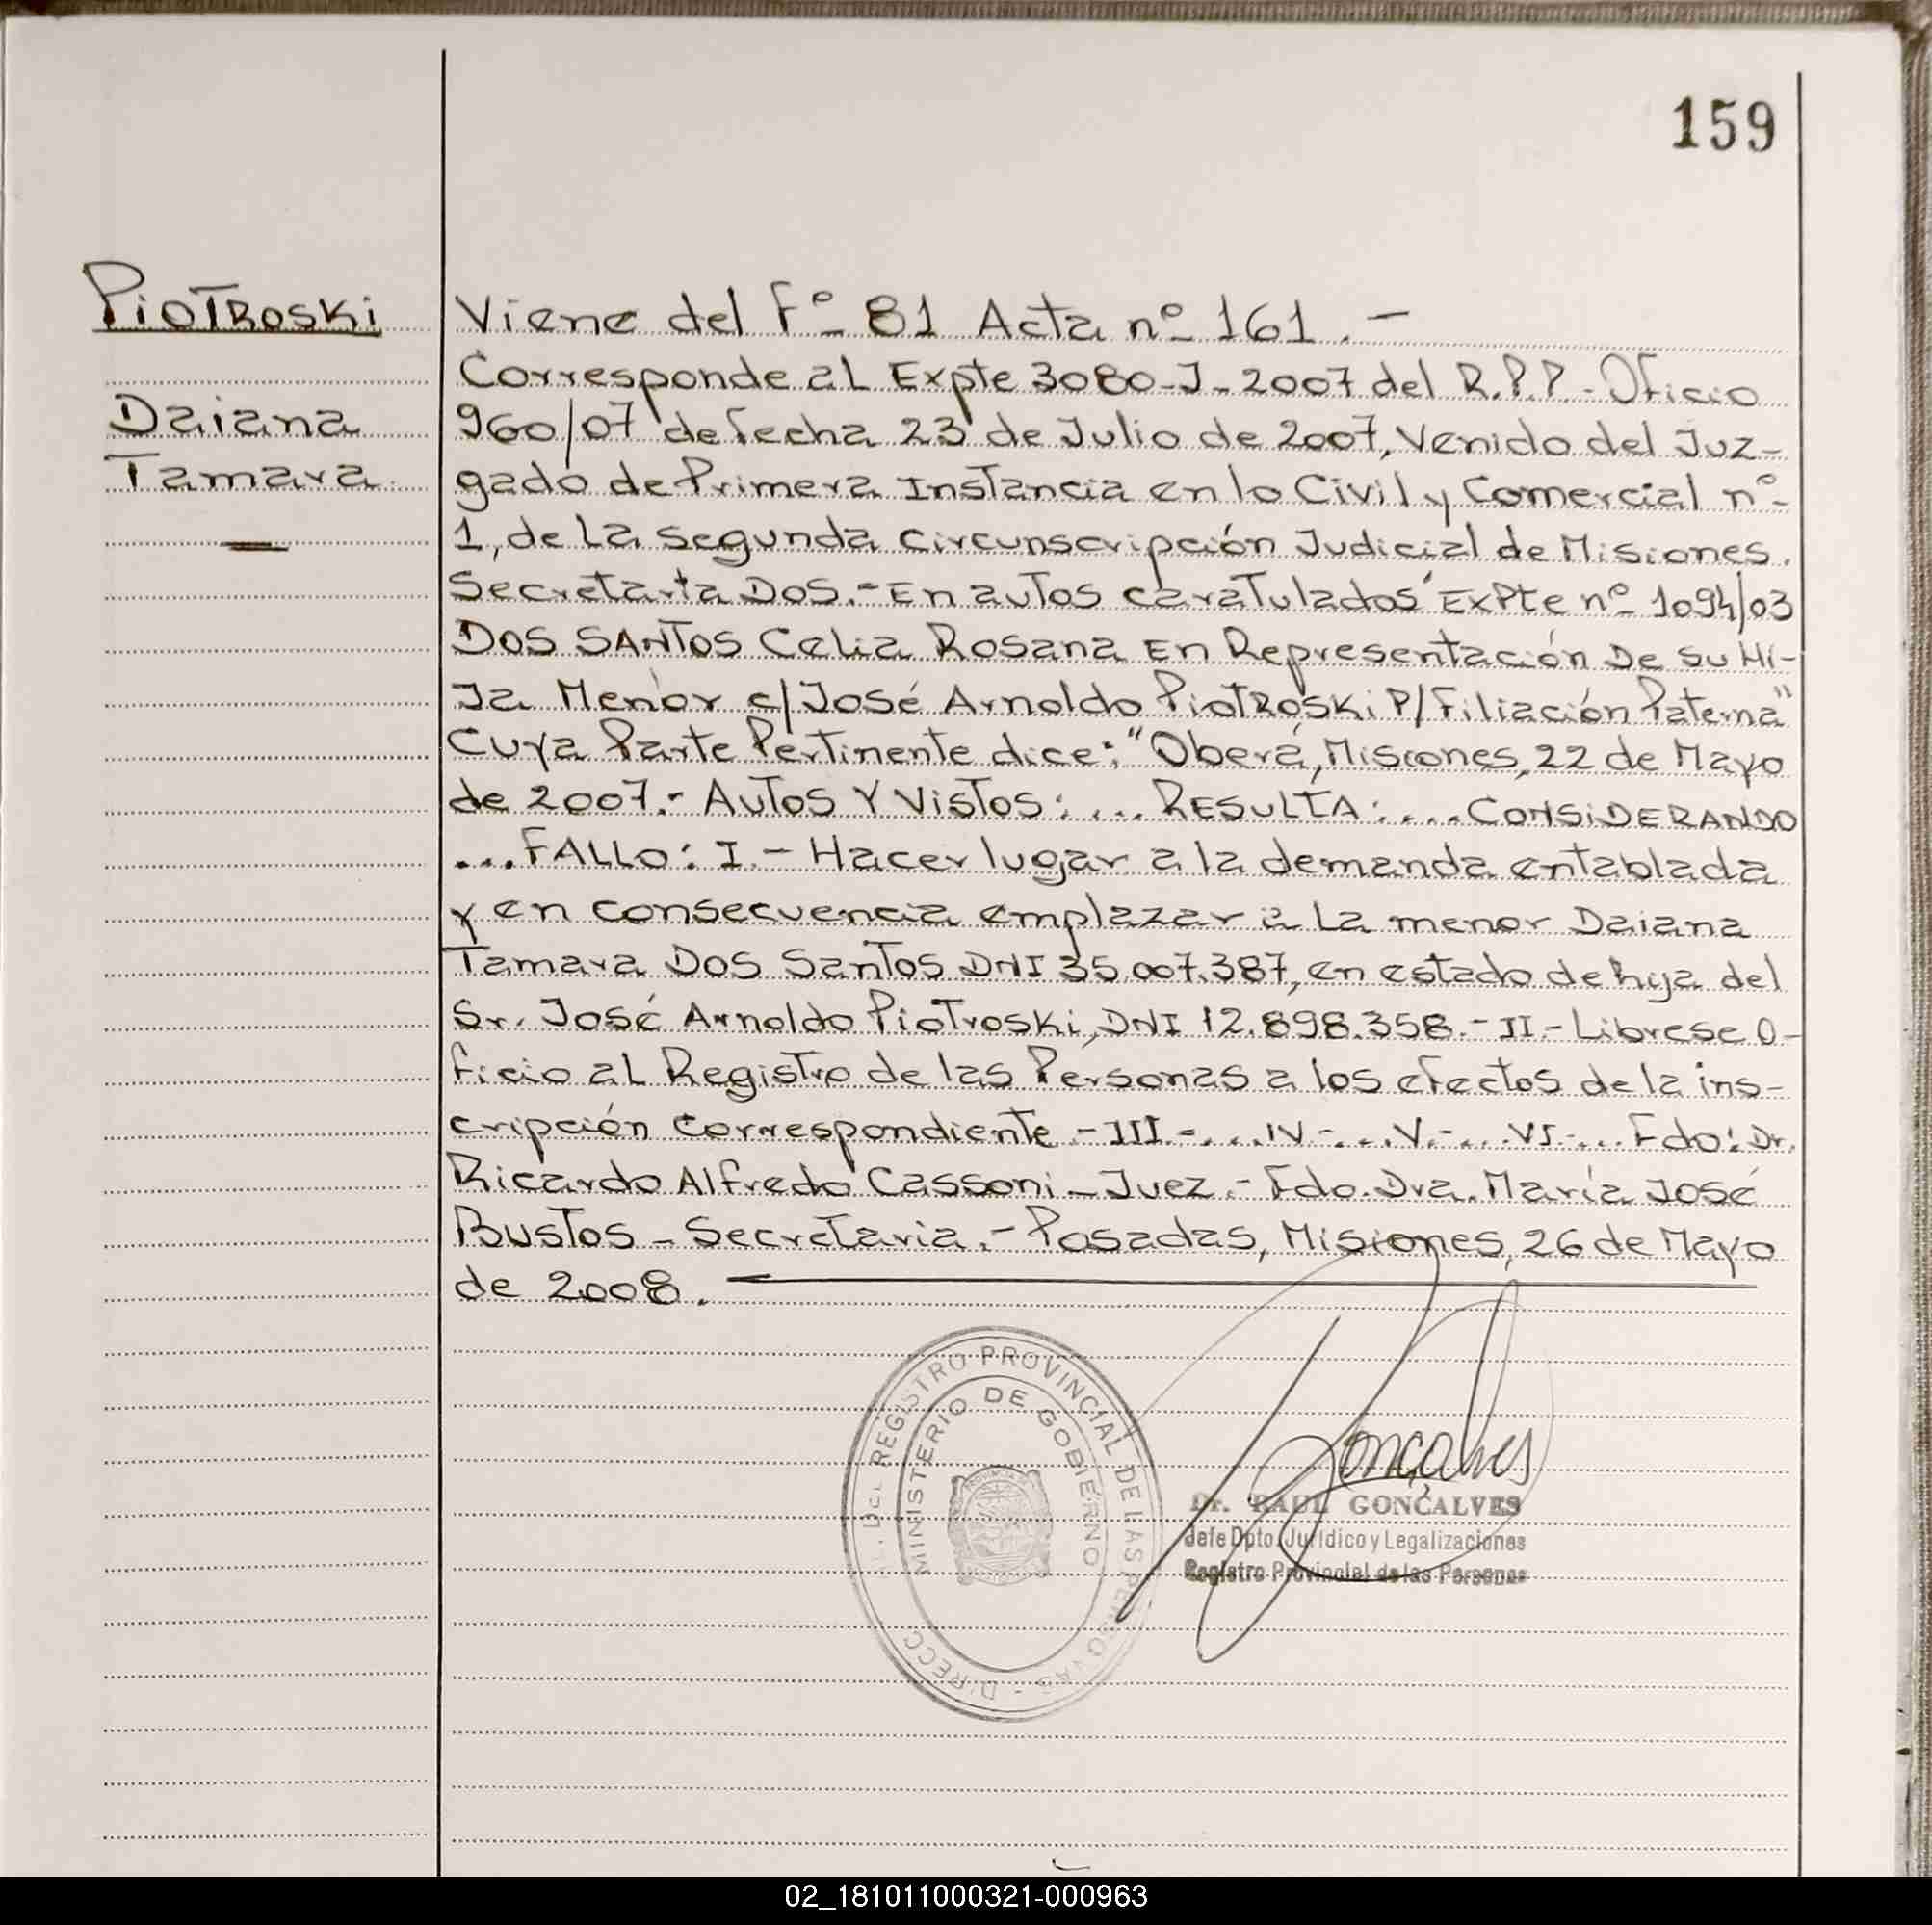 159
PIOTROSKI
Daiana
Tamara
Viene del Fº 81 Acta nº 161.-
Corresponde al Expte 3080-J-2007 del R.P.P.- Oficio
960/07 de fecha 23 de Julio de 2007, Venido del Juz-
gado de Primera Instancia en lo Civil y Comercial nº
1, de la segunda circunscripción Judicial de Misiones.
Secretaria DOS.- En autos caratulados "Expte nº 1094/03
DOS SANTOS Celia Rosana En Representación De su Hi-
Ja Menor c/José Arnoldo Piotroski P/Filiación Paterna"
Cuya Parte Pertinente dice: "Oberá, Misiones, 22 de Mayo
de 2007.- AUTOS Y VISTOS: ... RESULTA: .... CONSIDERANDO
... FALLO: I.- Hacer lugar a la demanda entablada
y en consecuencia emplazar a la menor Daiana
Tamara Dos Santos DNI 35.007.387, en estado de hija del
Sr. José Arnoldo Piotroski, DNI 12.898.358.- II.- Librese O-
ficio al Registro de las Personas a los efectos de la ins-
cripción correspondiente.- III.-... IV-... V.-... VI-... Fdo: Dr.
Ricardo Alfredo Cassoni - Juez.- Fdo. Dra. María José
Bustos - Secretaria.- Posadas, Misiones, 26 de Mayo
de 2008.
DIRECC. DEL REGISTRO PROVINCIAL DE LAS PERSONAS -
MINISTERIO DE GOBIERNO
Gonçalves
Dr. RAUL GONÇALVES
Jefe Dpto. Jurídico y Legalizaciones
Registro Provincial de las Personas
02_181011000321-000963